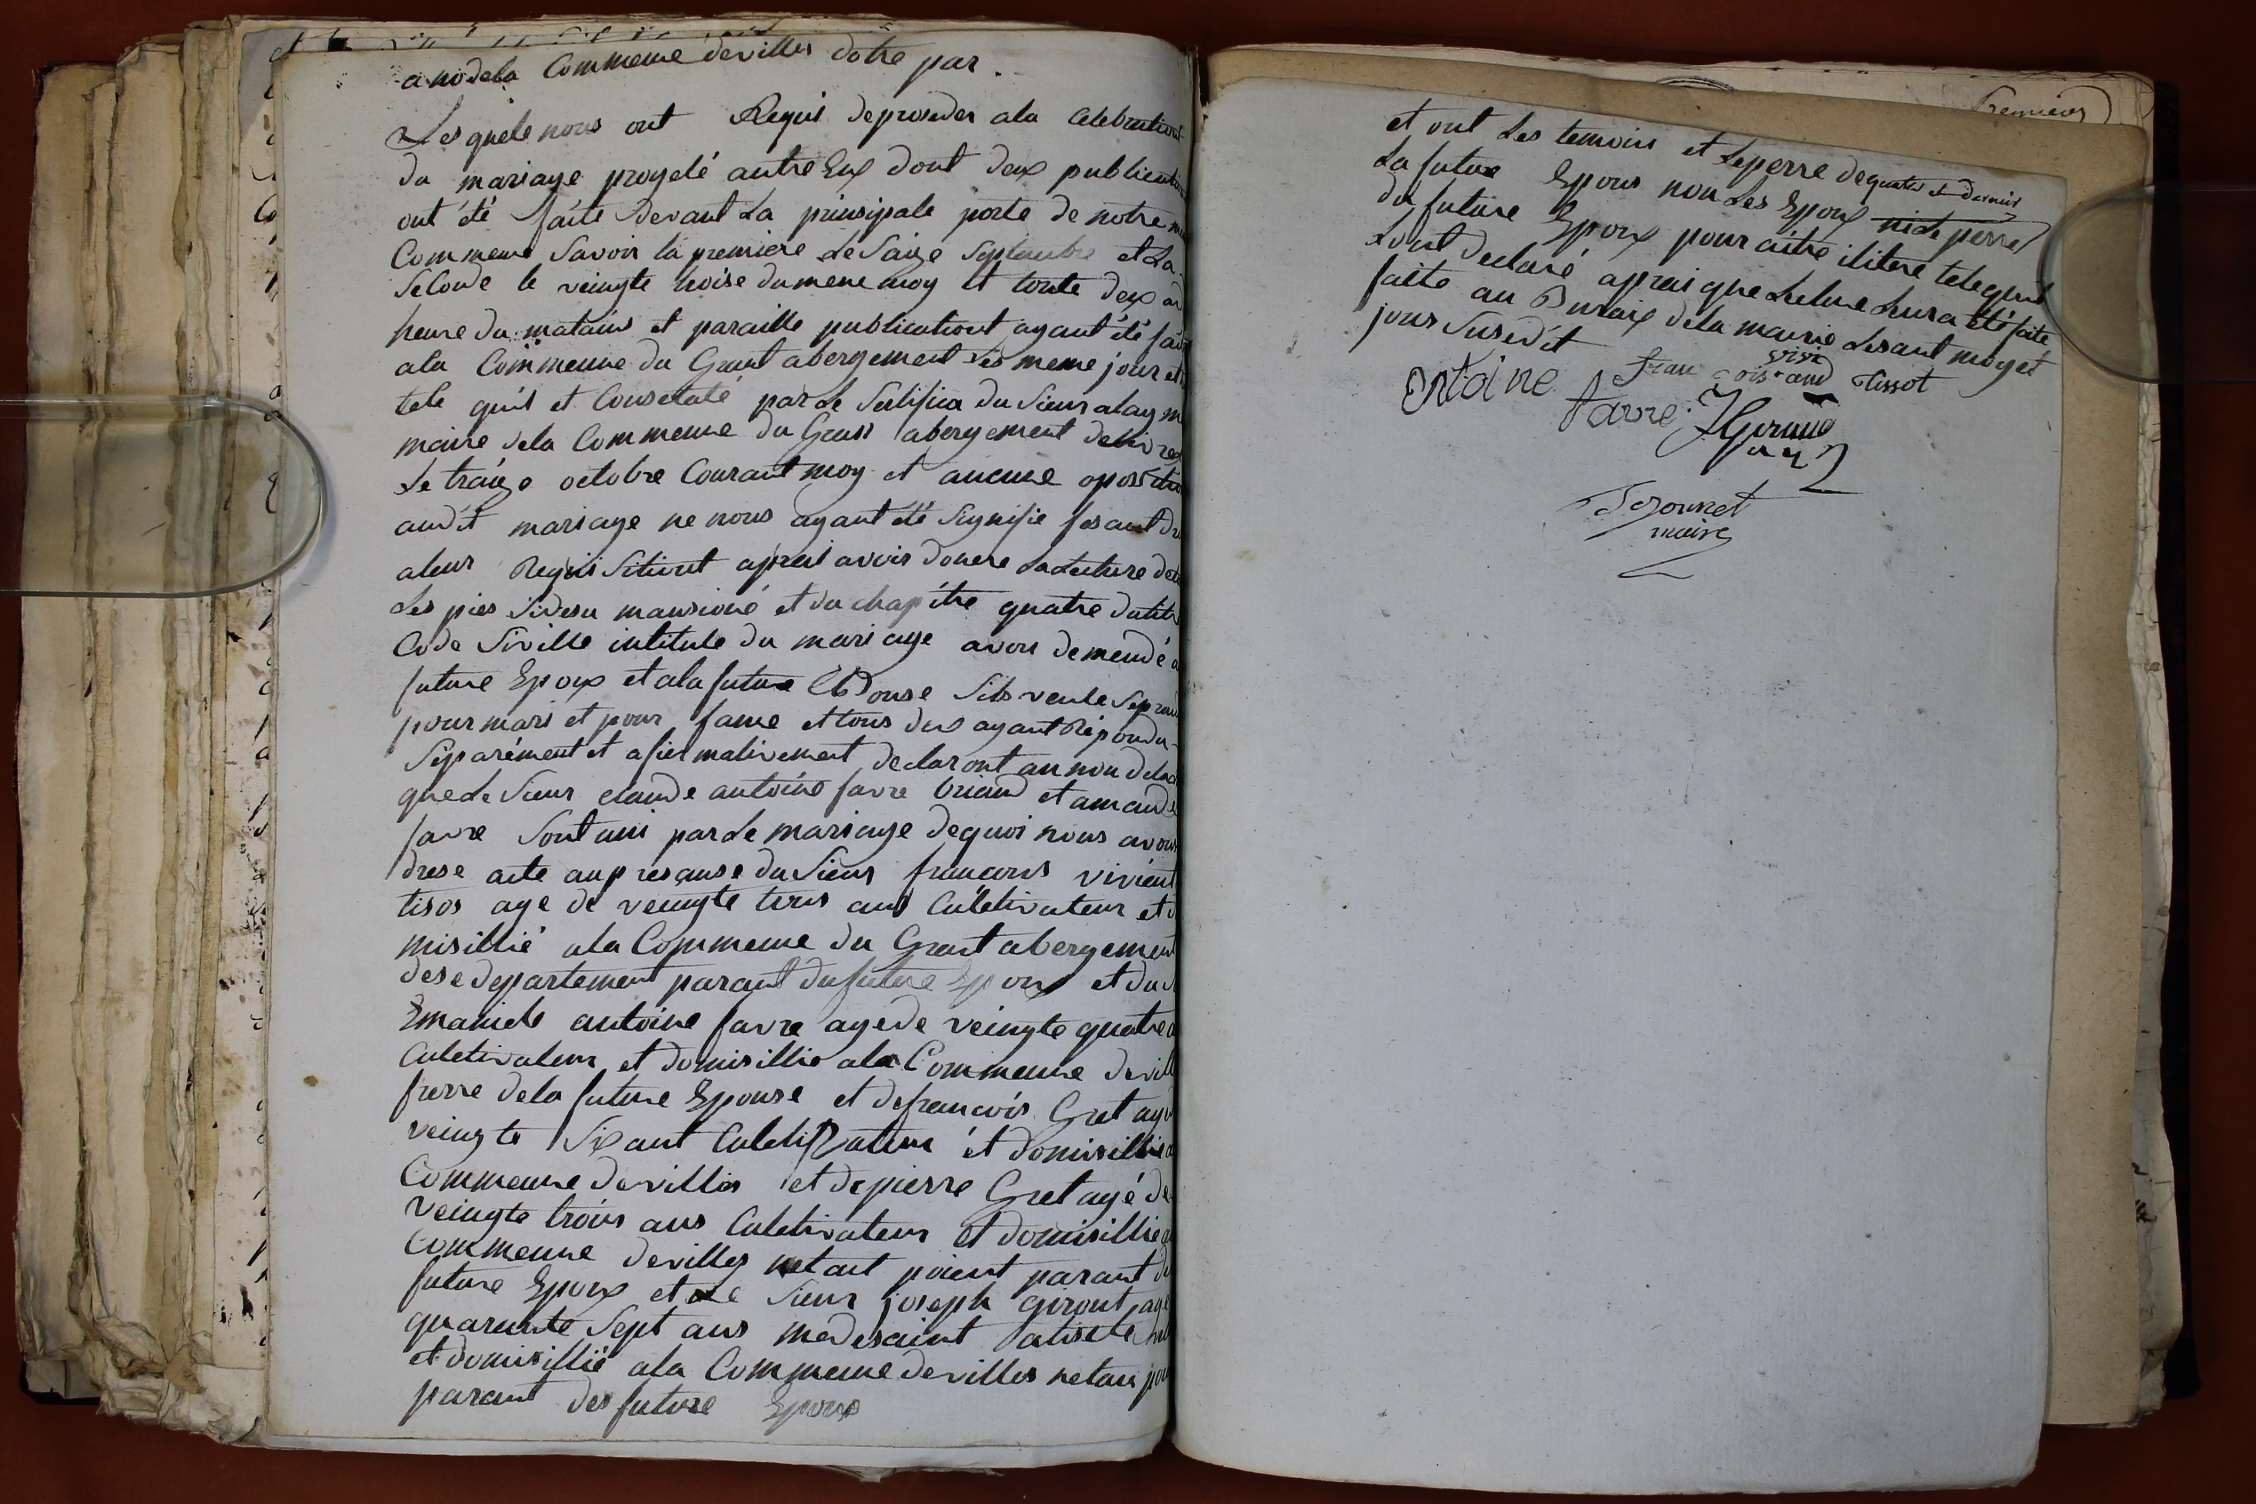 a no dela Commeune devilles dotre par.
Les quele nous ont Requi deproseder ala Celebrationt
du mariage progeté antre Eux dont deux publication
ont été faite devant La prinsipale porte de notre
Commeune Savoir la premiere Le Saize Septembre et La
Seconde le veingte troise dumeme moy et toute deux
heure du mataius et paraille publicationt ayant été fai
ala Commeune du Grant abergement Les meme jour et
tele quil et Consetaté par Le Sertifica du Sieur alay
maire dela Commeune du Grant abergement delivre
Le traize octobre Courant moy et aucune oposition
audit mariage ne nous ayant été Signifie fesant dr
aleur Requisitiont aprai avoir donere La Lecture de
Les pies Sidesu mansioné et du chapitre quatre dutitre
Code Siville intitule du mariage avon demendé a
future Epoux et ala future Epouse Sils veule Seprand
pour mari et pour fame et tous deux ayant Répondu
Séparément et afirmativement declaront au non dela
que Le Sieur claude antoine favre briand et amande
favre Sont uni par Le mariage dequoi nous avons
drese acte anpresanse du Sieur francois vivient
tisos age de veingte trois ans Culetivateur et
misillié ala Commeune du Grant abergement
dese departement parant dufuture Epoux et du
Emaniele antoine favre agede veingte quatre
Culetivateur et domisillie ala Commeune devill
frerre dela future Epouse et defrancois Gret age
veingte Six ant Culetivateur et domisillie
Commeune devilles et depierre Gret agé de
veingte trois ans Culetivateur et domisillie
Commeune devilles netant poient parant du
future Epoux et Le Sieur joseph giront age
quarante Sept ans medesaint
et domisillié ala Commeune devilles netan poi
parant des future Epoux
et ont Les temoin et Leperre dequatre et dernier
La future Epous non Les Epoux ni de perre
du future Epoux pour aitre ilitere telequil
Lont declaré aprai que Lecture Leur a été faite
faite au Buraix dela mairie Lesant moy et
jour Susedit
antoine favre francois vivi and tissot
J Giround
maire